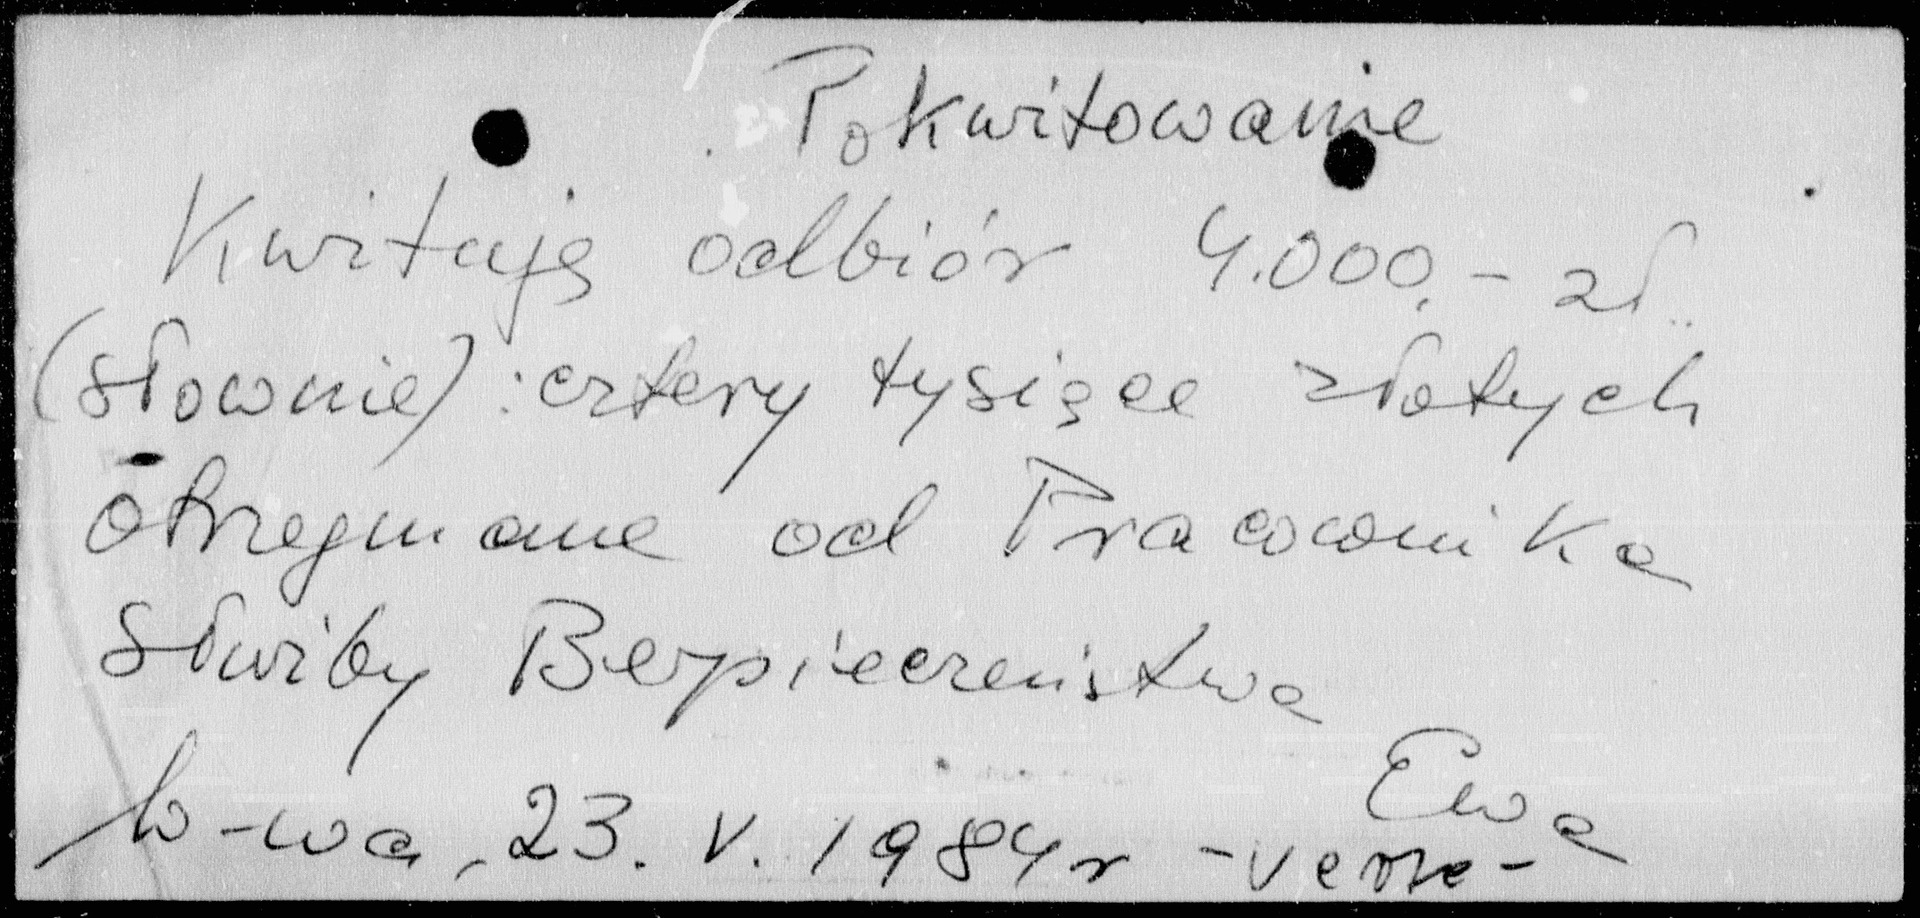 Pokwitowanie
Kwituję odbiór 4.000,- zł.
(słownie): cztery tysiące złotych
otrzymane od Pracownika
Służby Bezpieczeństwa
W-wa, 23. V. 1984r Ewa